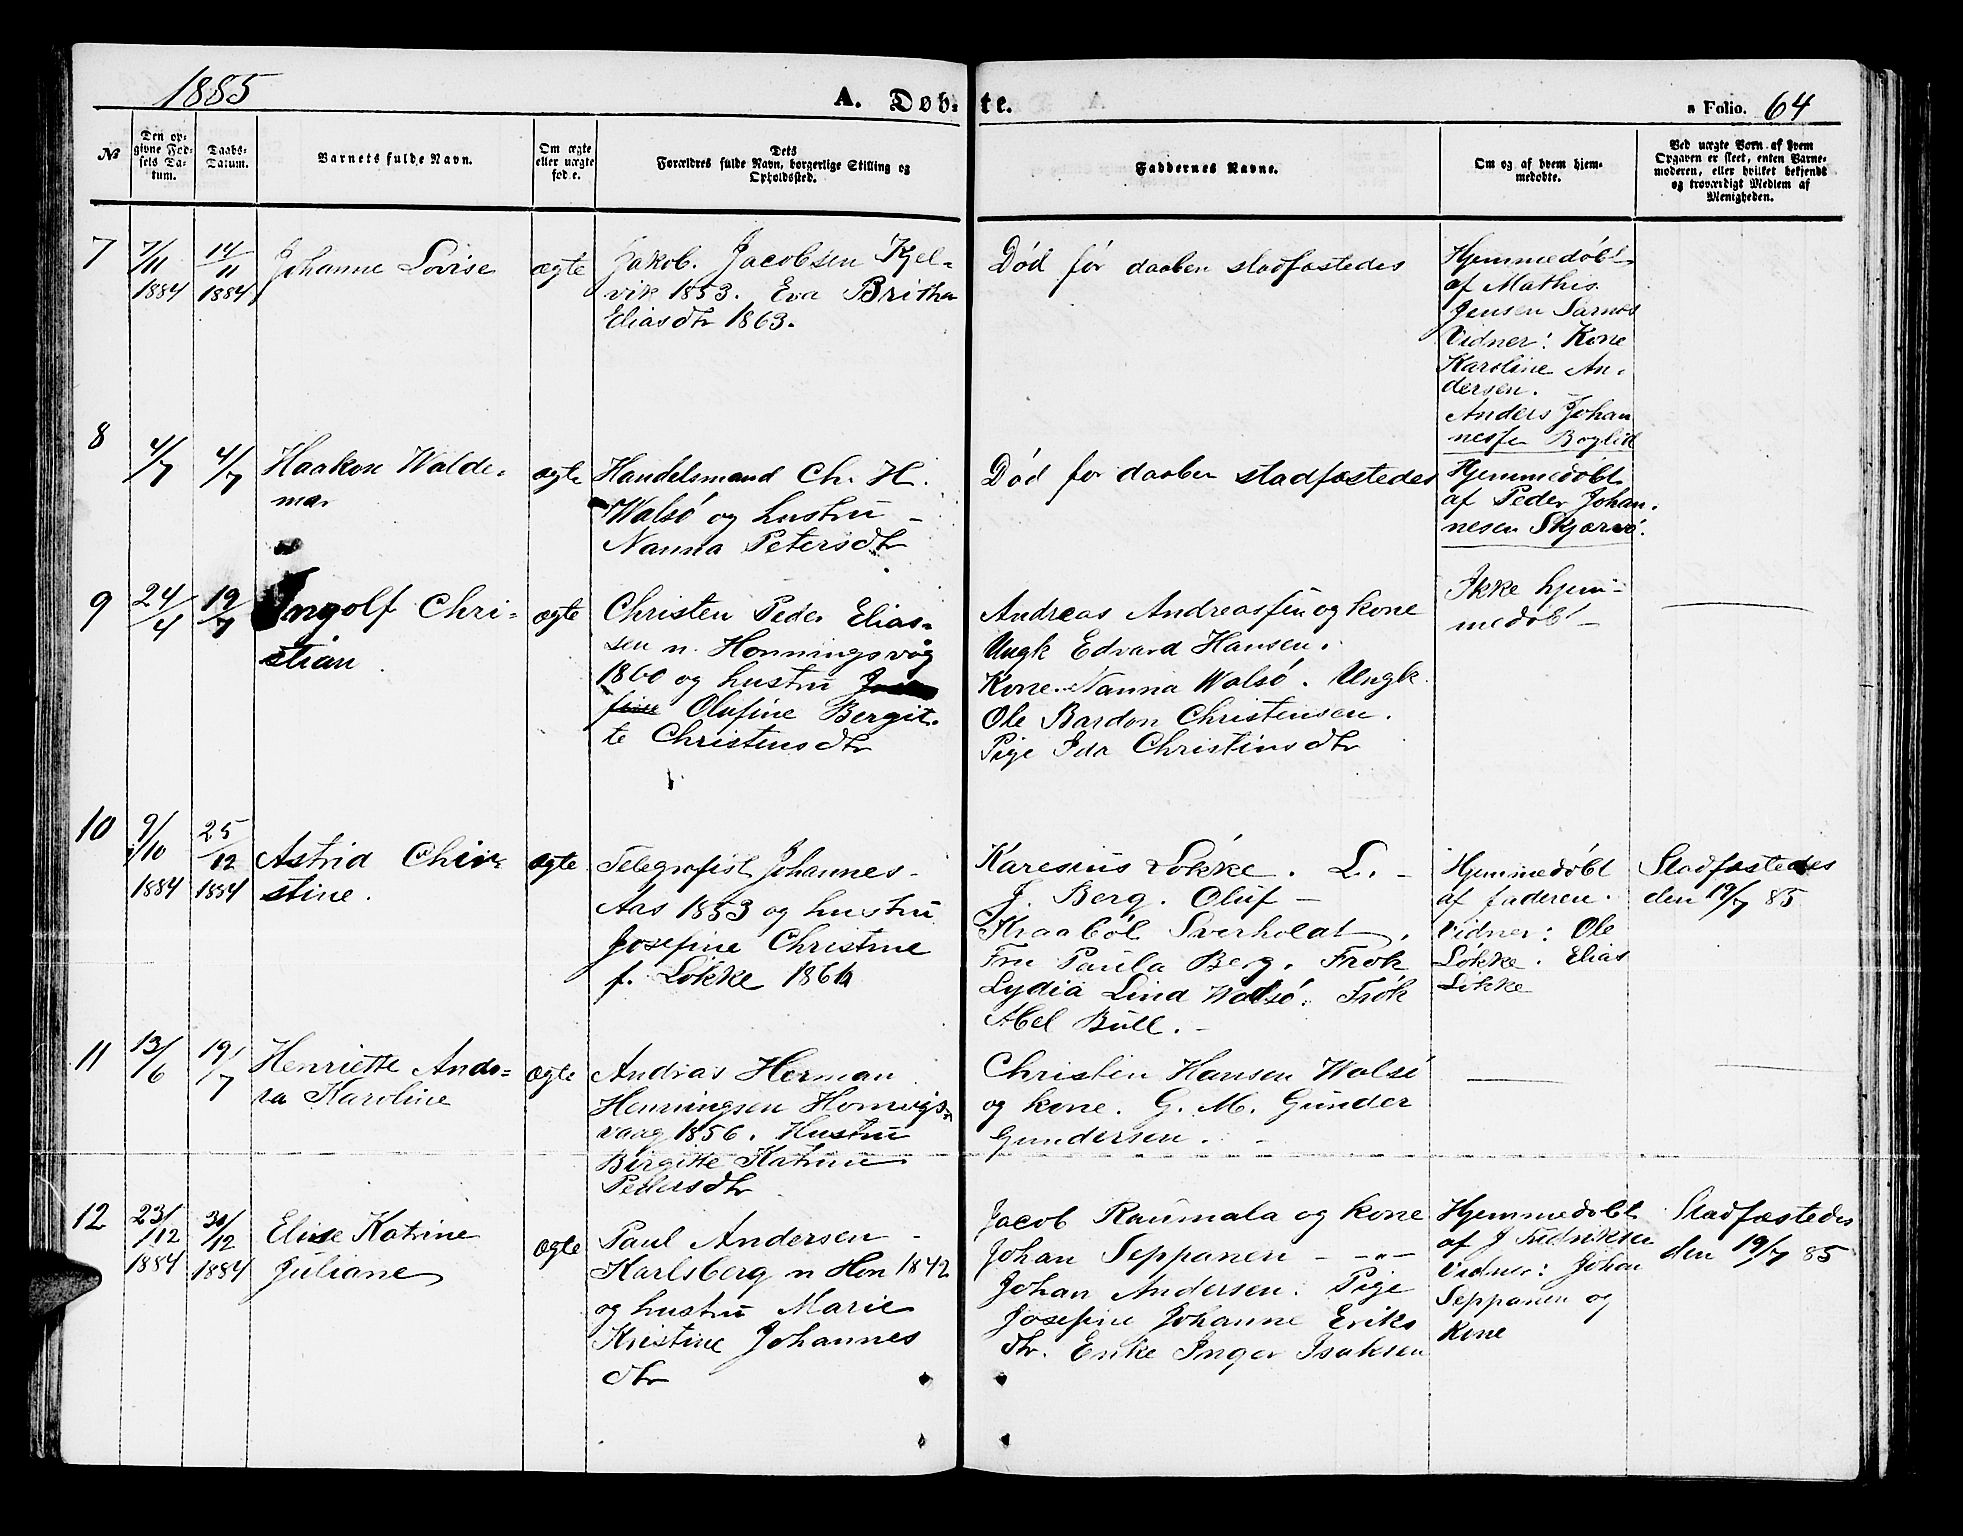 1885
A. Døbte.
Folio. 64
№
Den opgivne Fødsels Datum.
Daabs-Datum.
Barnets fulde Navn.
Om ægte eller uægte føde.
Dets Forældres fulde Navn, borgerlige Stilling og Opholdssted.
Faddernes Navne.
Om og af hvem hjemmedøbte.
Ved uægte Børn af hvem Opgaven er skeet, enten Barnemoderen, eller hvilket bekjendt og troværdigt Medlem af Menigheden.
7
7/11 1884
14/11 1884
Johanne Lovise
ægte
Jakob. Jacobsen Kjel-
vik 1853. Eva Britha
Eliasdtr 1863.
Død før daaben stadfæstedes
Hjemmedøbt
af Mathis
Jensen Sarnes
Vidner: Kone
Karoline An-
dersen.
Anders Johan
nessen
8
4/7
4/7
Haakon Walde-
mar
ægte
Handelsmand Ch. H.
Walsö og hustru
Nanna Petersdtr
Død før daaben stadfæstedes
Hjemmedøbt
af Peder Johan-
nesen
9
24/4
19/7
Ingolf Chri-
stian
ægte
Christen Peder Elias-
sen n. Honningsvåg
1860 og hustru
Olufine Bergit-
te Christensdtr
Andreas Andreassen og kone
Ungk Edvard Hansen.
Kone. Nanna Walsö. Ungk.
Ole Bardon Christensen.
Pige Ida Christinsdtr
Ikke hjem-
medøbt
10
9/10 1884
25/12 1884
Astrid Chri-
stine.
ægte
Telegrafist Johannes
Aas 1853 og hustru
Josefine Christine
f. Løkke
Karesius Løkke. L.
J. Berg. Oluf
Kraaböl Sverholdt.
Fru Paula Berg. Frøk
Lydia Lind Walsö. Frøk
Abel Bull.
Hjemmedøbt
af faderen.
Vidner: Ole
Løkke. Elias
Løkke
Stadfæstedes
den 19/7 85
11
13/6
19/7
Henriette Ande-
ra Karoline
ægte
Andras Herman
Henningsen
vaag 1856. Hustru
Birgitte Katrine
Pedersdtr
Christen Hansen Walsö
og kone. G. M. Gunder
Gundersen.
12
23/12 1884
30/12 1884
Elise Katrine
Juliane
ægte
Paul Andersen
Karlsberg n Hon 1842
og hustru Marie
Kristine Johannes
dtr
Jacob Raumala og kone
Johan Seppanen - " -
Johan Andersen. Pige
Josefine Johanne Eriks
dtr. Enke Inger Isaksen
Hjemmedøbt
af J Fredriksen
Vidner: Johan
Seppanen og
Kone
Stadfæstedes
den 19/7 85